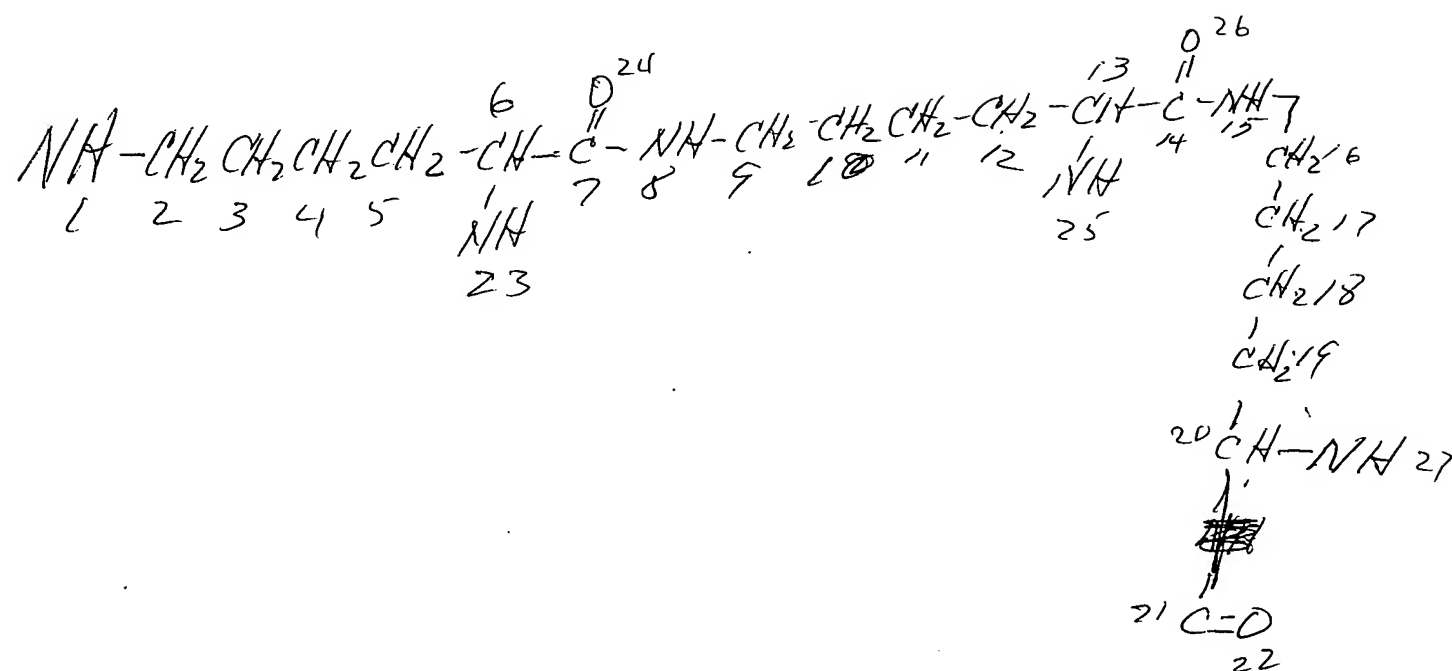 O 26
O 24
6
13
NH-CH2 CH2 CH2 CH2-CH-C-NH-CH2-CH2 CH2-CH2-CH-C-NH
1 2 3 4 5 7 8 9 10 11 12 14 15
NH
23
NH
25
CH2 16
CH2 17
CH2 18
CH2 19
20 CH-NH 27
21 C=O
22